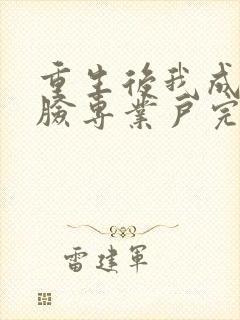 重生後我成
臉專業戶完
雷建軍